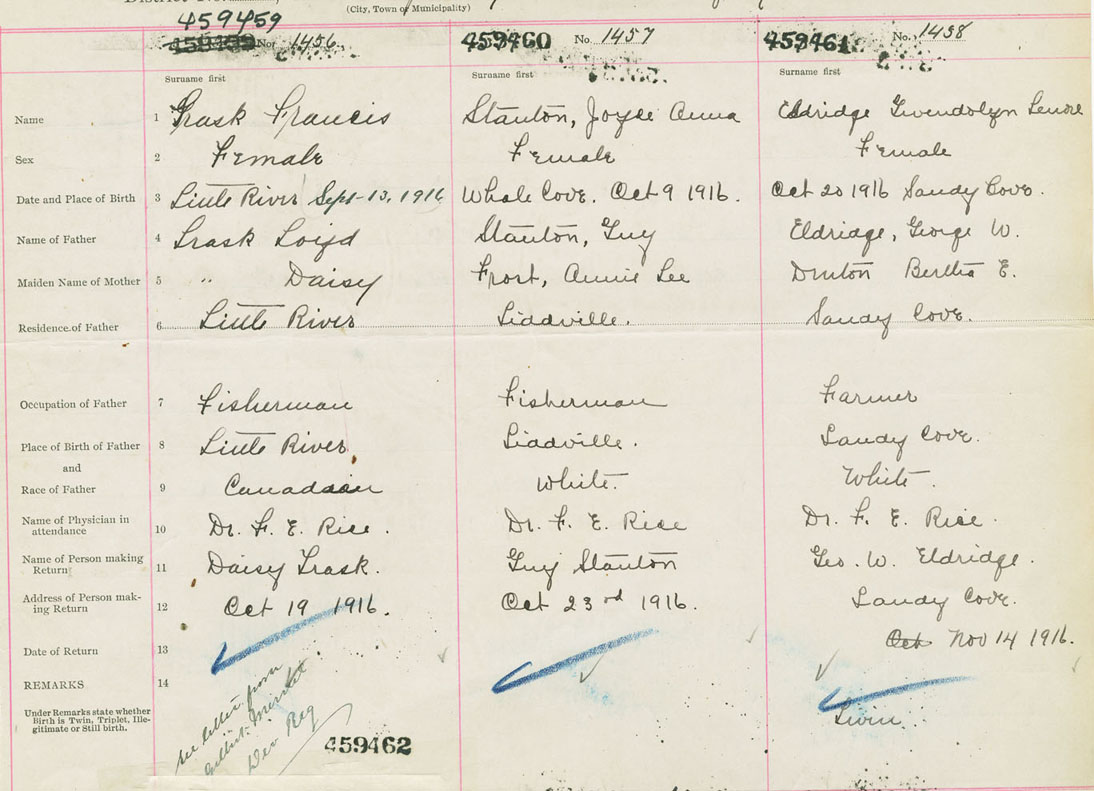 (City, Town or Municipality)
459459
459459 No. 1456 459460 No. 1457 459461 No. 1458
Surname first Surname first Surname first
Name 1 Trask Francis Stanton, Joyce Anna Eldridge Gwendolyn Lenore
Sex 2 Female Female Female
Date and Place of Birth 3 Little River Sept-13, 1916 Whale Cove. Oct 9 1916. Oct 20 1916 Sandy Cove.
Name of Father 4 Trask Loiyd Stanton, Guy Eldridge, George W.
Maiden Name of Mother 5 " Daisy Frost, Annie Lee Bertha E.
Residence of Father 6 Little River Sandy Cove.
Occupation of Father 7 Fisherman Fisherman Farmer
Place of Birth of Father 8 Little River Sandy Cove.
and
Race of Father 9 Canadian White. White.
Name of Physician in
attendance 10 Dr. F. E. Rice. Dr. F. E. Rice Dr. F. E. Rice.
Name of Person making
Return 11 Daisy Trask. Guy Stanton Geo. W. Eldridge.
Address of Person mak-
ing Return 12 Oct 19 1916. Oct 23rd 1916. Sandy Cove.
Oct Nov 14 1916.
Date of Return 13
REMARKS 14
Under Remarks state whether
Birth is Twin, Triplet, Ille-
gitimate or Still birth.
see letter from
Dep Reg
459462